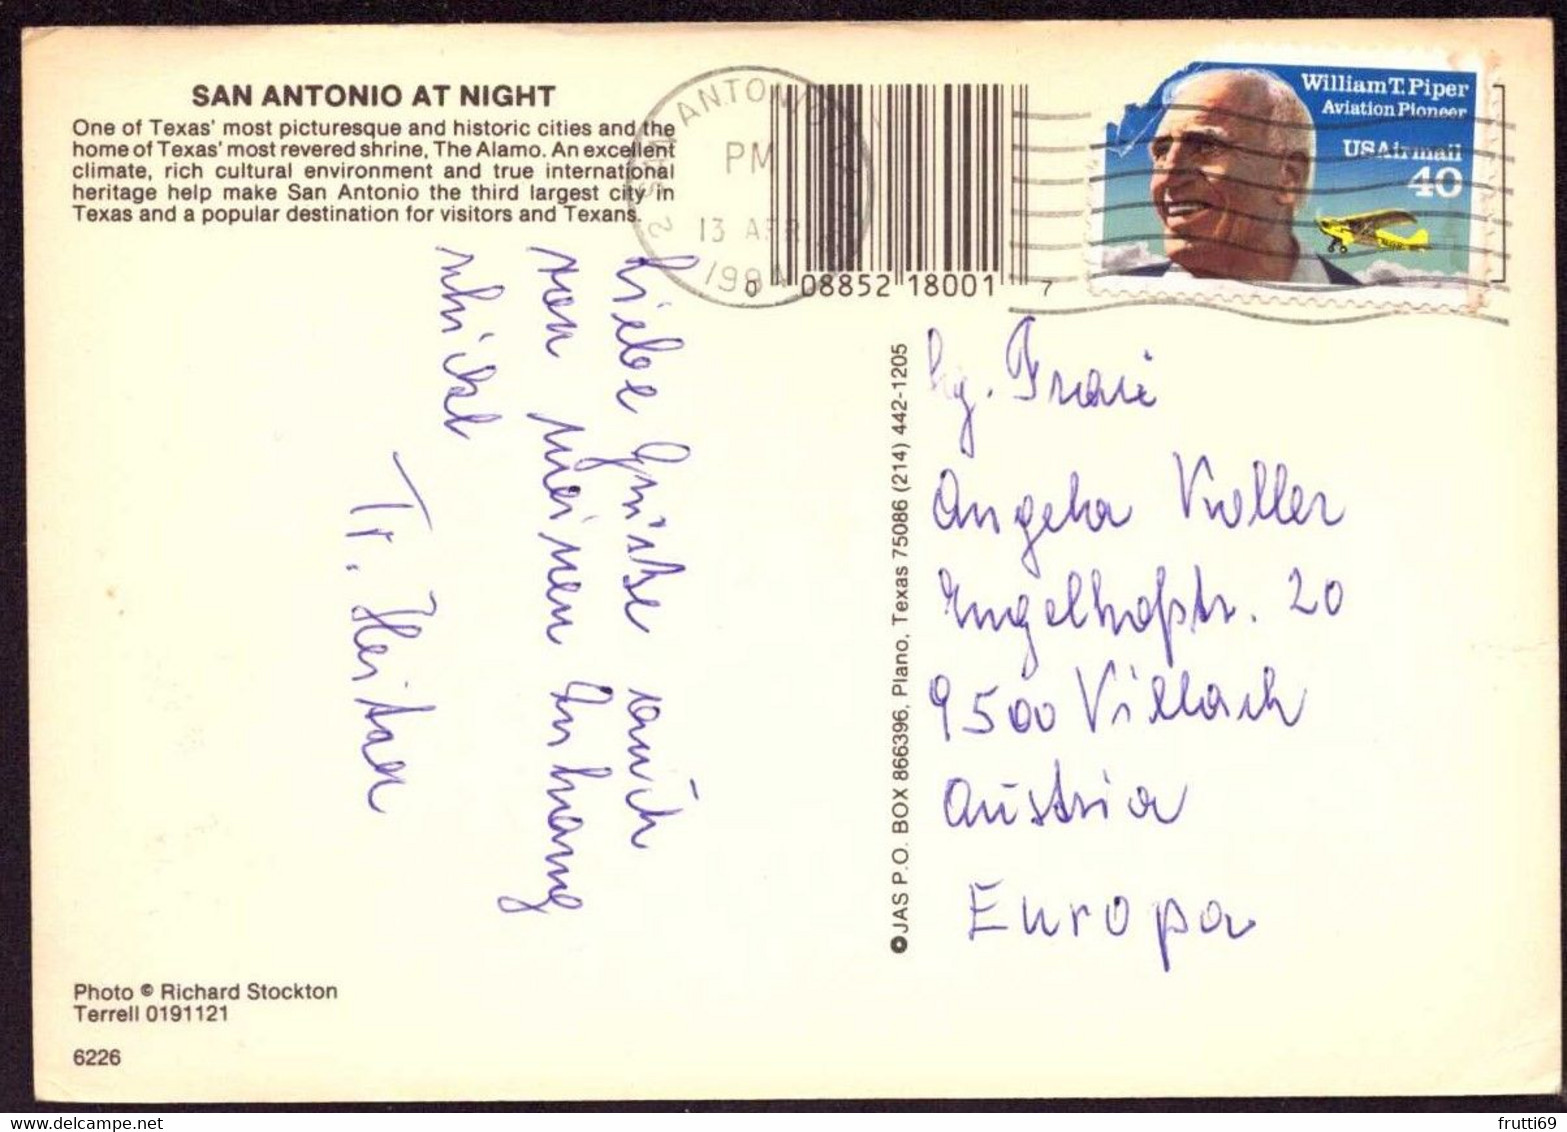 SAN ANTONIO AT NIGHT
One of Texas' most picturesque and historic cities and the
home of Texas' most revered shrine, The Alamo. An excellent
climate, rich cultural environment and true international
heritage help make San Antonio the third largest city in
Texas and a popular destination for visitors and Texans.
SAN ANTONIO
PM
13 APR
0 08852 18001 7
William T. Piper
Aviation Pioneer
US Airmail
40
Liebe Grüsse auch
von meinem Anhang
schickt
Fr.
JAS P.O. BOX 866396, Plano, Texas 75086 (214) 442-1205
Hg. Frau
Angela Koller
Engelhofstr. 20
9500 Villach
Austria
Europa
Photo © Richard Stockton
Terrell 0191121
6226
frutti69